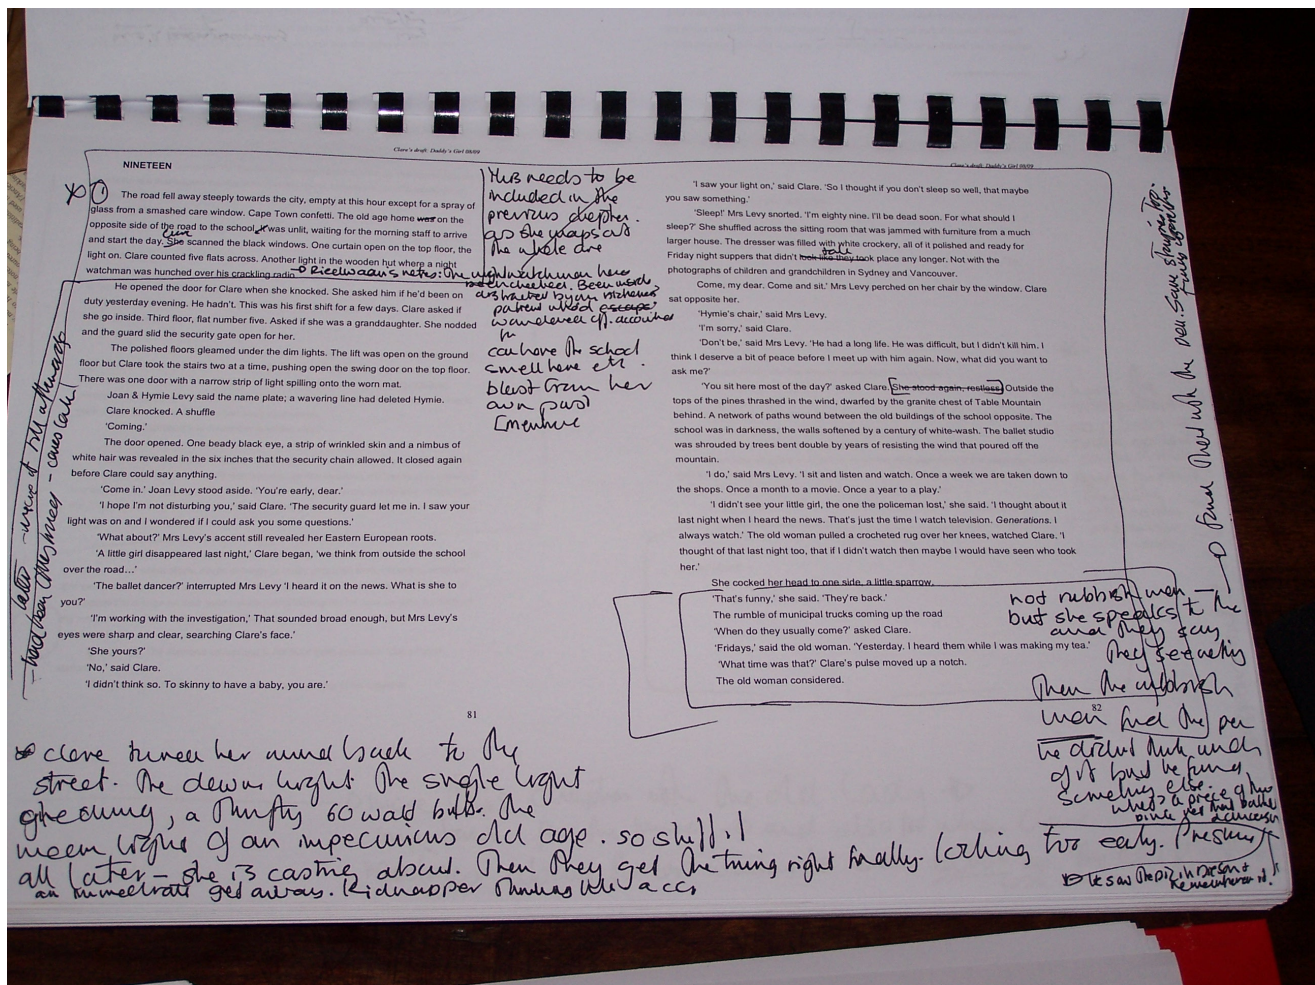 Clare's draft. Daddy's Girl 08/09
NINETEEN
The road fell away steeply towards the city, empty at this hour except for a spray of
glass from a smashed care window. Cape Town confetti. The old age home was on the
opposite side of the road to the school, it was unlit, waiting for the morning staff to arrive
Clare
and start the day. She scanned the black windows. One curtain open on the top floor, the
light on. Clare counted five flats across. Another light in the wooden hut where a night
watchman was hunched over his crackling radio
He opened the door for Clare when she knocked. She asked him if he'd been on
duty yesterday evening. He hadn't. This was his first shift for a few days. Clare asked if
she go inside. Third floor, flat number five. Asked if she was a granddaughter. She nodded
and the guard slid the security gate open for her.
The polished floors gleamed under the dim lights. The lift was open on the ground
floor but Clare took the stairs two at a time, pushing open the swing door on the top floor.
There was one door with a narrow strip of light spilling onto the worn mat.
Joan & Hymie Levy said the name plate; a wavering line had deleted Hymie.
Clare knocked. A shuffle
'Coming.'
The door opened. One beady black eye, a strip of wrinkled skin and a nimbus of
white hair was revealed in the six inches that the security chain allowed. It closed again
before Clare could say anything.
'Come in.' Joan Levy stood aside. 'You're early, dear.'
'I hope I'm not disturbing you,' said Clare. 'The security guard let me in. I saw your
light was on and I wondered if I could ask you some questions.'
'What about?' Mrs Levy's accent still revealed her Eastern European roots.
'A little girl disappeared last night,' Clare began, 'we think from outside the school
over the road…'
'The ballet dancer?' interrupted Mrs Levy 'I heard it on the news. What is she to
you?'
'I'm working with the investigation,' That sounded broad enough, but Mrs Levy's
eyes were sharp and clear, searching Clare's face.'
'She yours?'
'No,' said Clare.
'I didn't think so. To skinny to have a baby, you are.'
81
This needs to be
included in the
previous chapter.
as she maps out
the whole
notes: The nightwatchman here
Been
distracted by an
patient who'd escape
wandered off.
can have the school
smell here etc.
her
own past
later
Clare turned her mind back to the
street. The dawn light. The single light
gleaming, a thrifty 60 watt bulb. The
mean light of an impecunious old age. so stuff.
all later – she is casting about. Then they get the timing right finally. looking too early. Presume
an immediate get away. Kidnapper thinking
Clare's draft. Daddy's Girl 08/09
'I saw your light on,' said Clare. 'So I thought if you don't sleep so well, that maybe
you saw something.'
'Sleep!' Mrs Levy snorted. 'I'm eighty nine. I'll be dead soon. For what should I
sleep?' She shuffled across the sitting room that was jammed with furniture from a much
larger house. The dresser was filled with white crockery, all of it polished and ready for
Friday night suppers that didn't look like they took place any longer. Not with the
photographs of children and grandchildren in Sydney and Vancouver.
Come, my dear. Come and sit.' Mrs Levy perched on her chair by the window. Clare
sat opposite her.
'Hymie's chair,' said Mrs Levy.
'I'm sorry,' said Clare.
'Don't be,' said Mrs Levy. 'He had a long life. He was difficult, but I didn't kill him. I
think I deserve a bit of peace before I meet up with him again. Now, what did you want to
ask me?'
'You sit here most of the day?' asked Clare. She stood again, restless. Outside the
tops of the pines thrashed in the wind, dwarfed by the granite chest of Table Mountain
behind. A network of paths wound between the old buildings of the school opposite. The
school was in darkness, the walls softened by a century of white-wash. The ballet studio
was shrouded by trees bent double by years of resisting the wind that poured off the
mountain.
'I do,' said Mrs Levy. 'I sit and listen and watch. Once a week we are taken down to
the shops. Once a month to a movie. Once a year to a play.'
'I didn't see your little girl, the one the policeman lost,' she said. 'I thought about it
last night when I heard the news. That's just the time I watch television. Generations. I
always watch.' The old woman pulled a crocheted rug over her knees, watched Clare. 'I
thought of that last night too, that if I didn't watch then maybe I would have seen who took
her.'
She cocked her head to one side, a little sparrow.
'That's funny,' she said. 'They're back.'
The rumble of municipal trucks coming up the road
'When do they usually come?' asked Clare.
'Fridays,' said the old woman. 'Yesterday. I heard them while I was making my tea.'
'What time was that?' Clare's pulse moved up a notch.
The old woman considered.
82
not rubbish men
but she speaks to the
and they say
they see nothing
Then the rubbish
men find the pen
he didn't think much
of it but he found
something else.